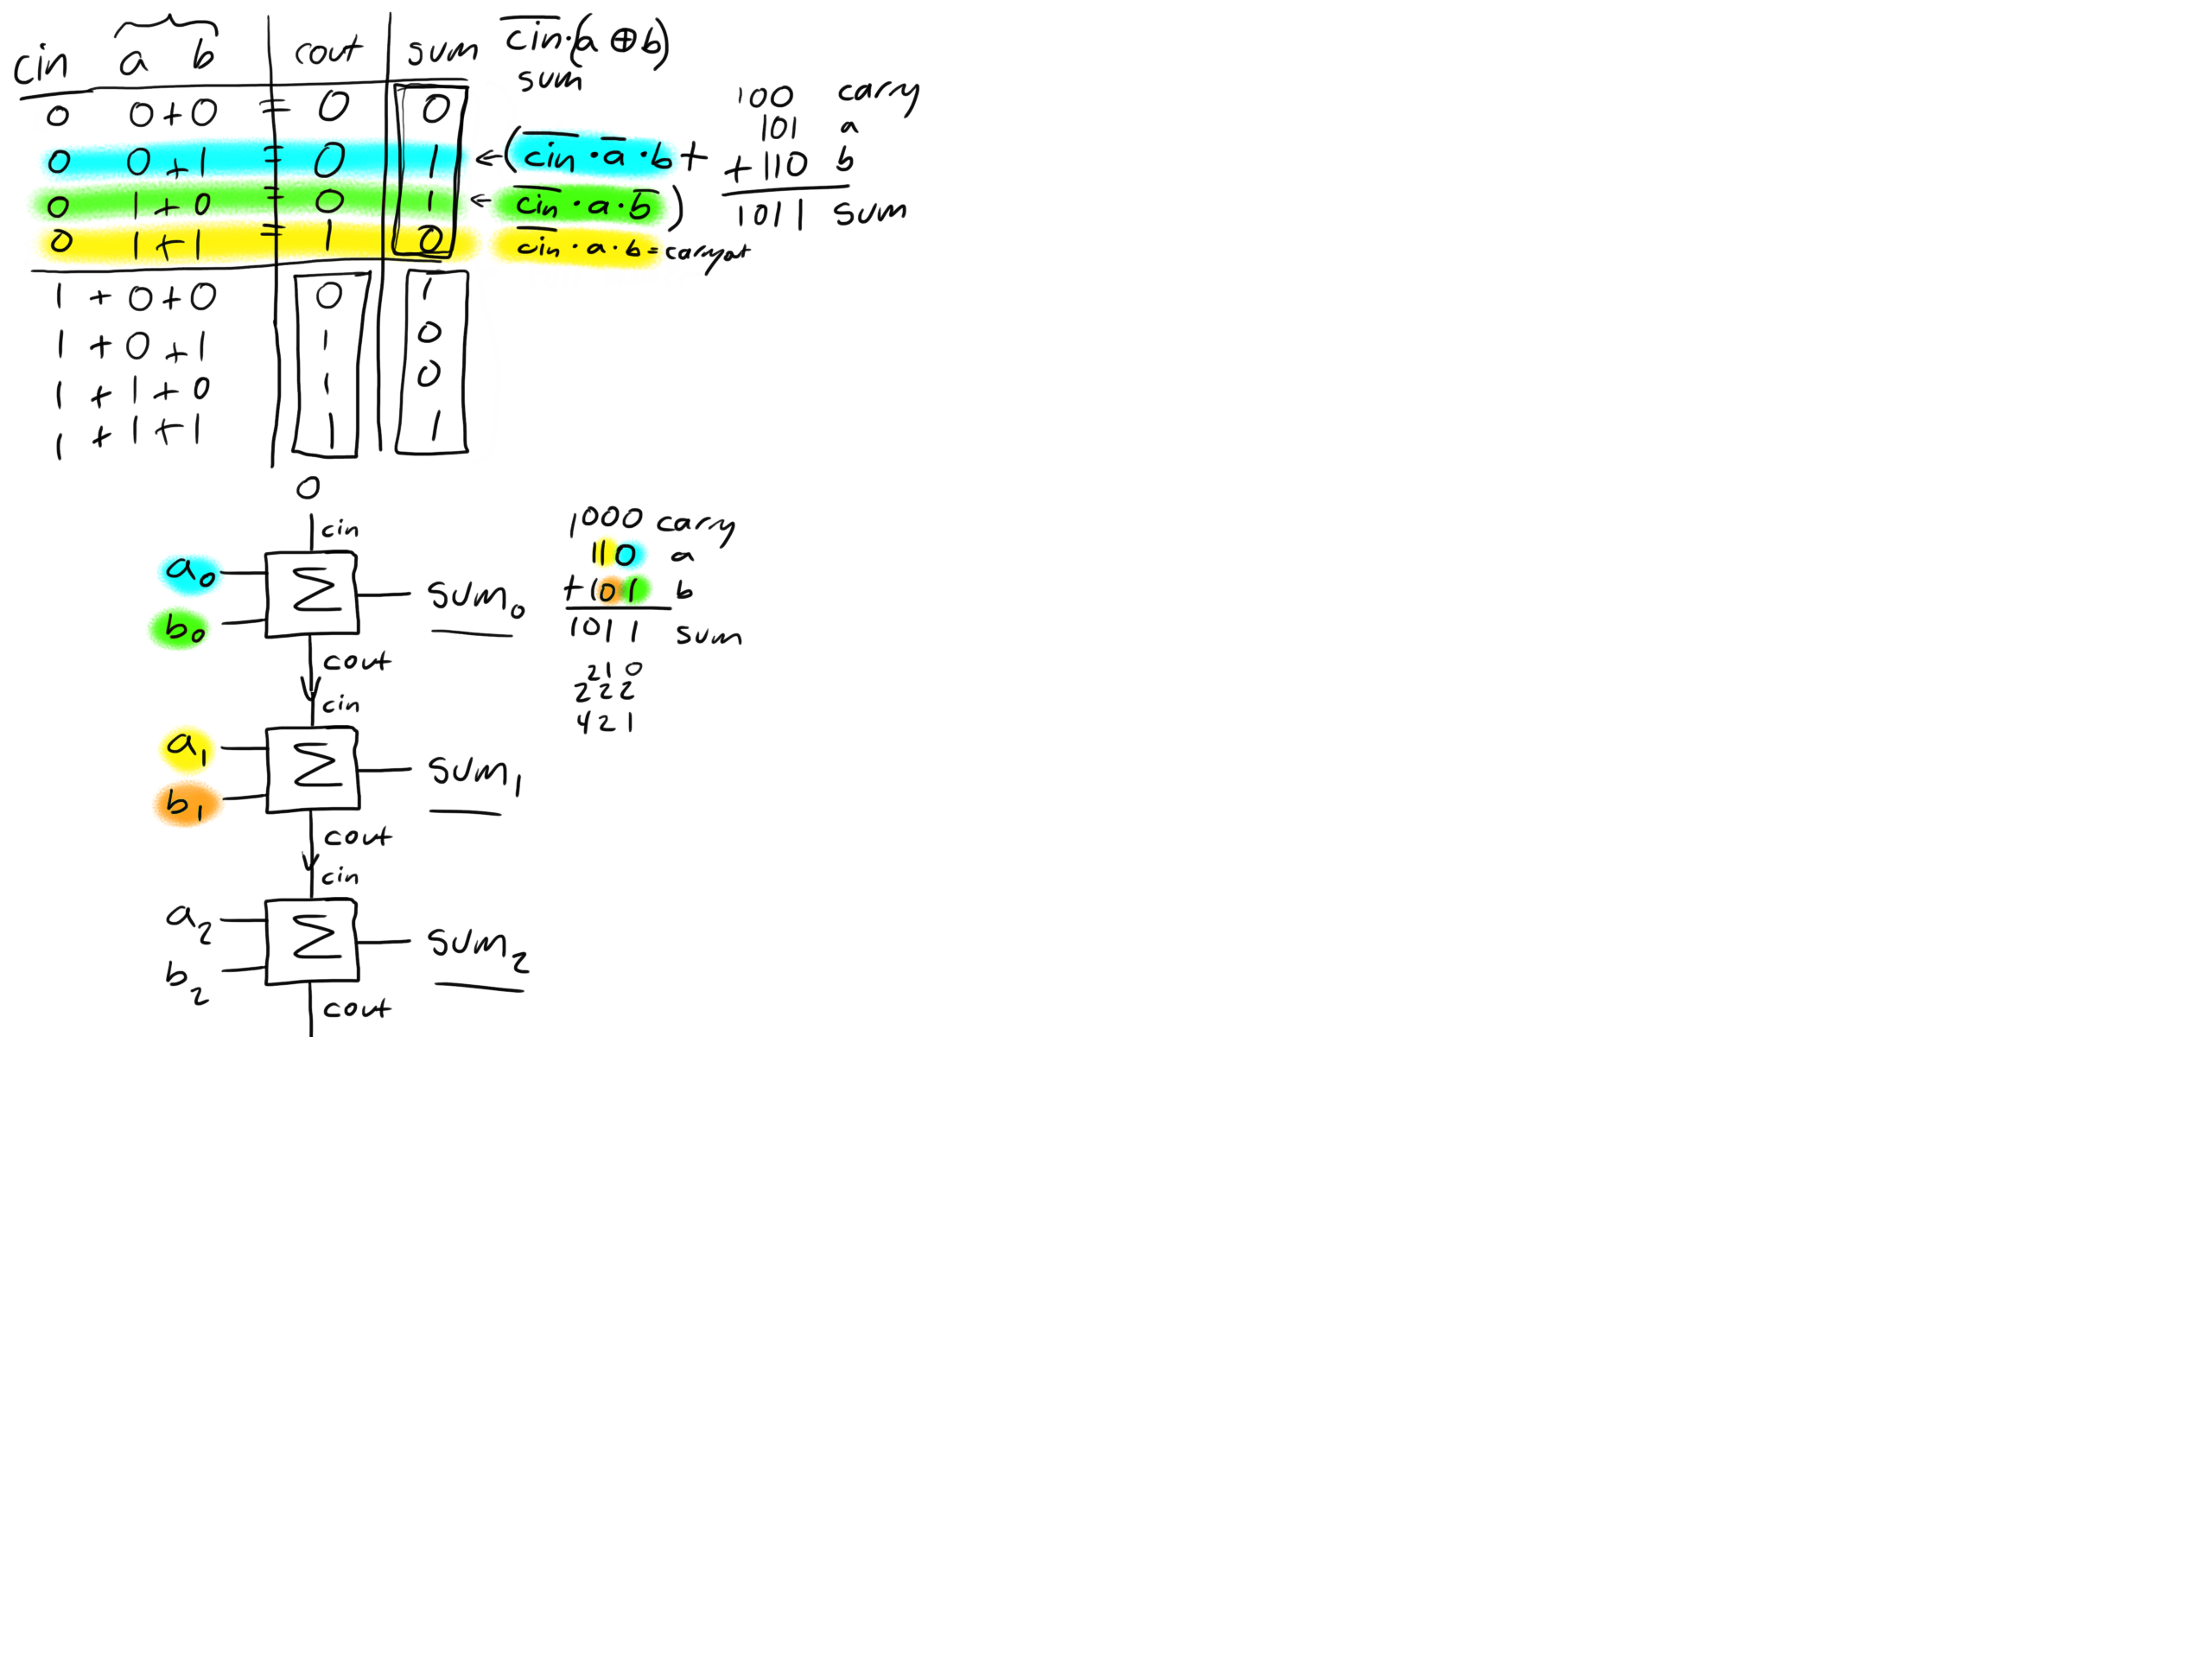 cin a b cout sum
0 0+0 = 0 0
0 0+1 = 0 1
0 1+0 = 0 1
0 1+1 = 1 0
1 + 0+0 0 1
1 + 0+1 1 0
1 + 1+0 1 0
1 + 1+1 1 1
c̅i̅n̅·(a ⊕ b)
sum
← (c̅i̅n̅ · a̅ · b +
← c̅i̅n̅ · a · b̅ )
c̅i̅n̅ · a · b = carryout
100 carry
101 a
+ 110 b
1011 sum
0
cin
a₀
Σ
sum₀
b₀
cout
cin
a₁
Σ
sum₁
b₁
cout
cin
a₂
Σ
sum₂
b₂
cout
1000 carry
110 a
+101 b
1011 sum
2 1 0
2 2 2
4 2 1